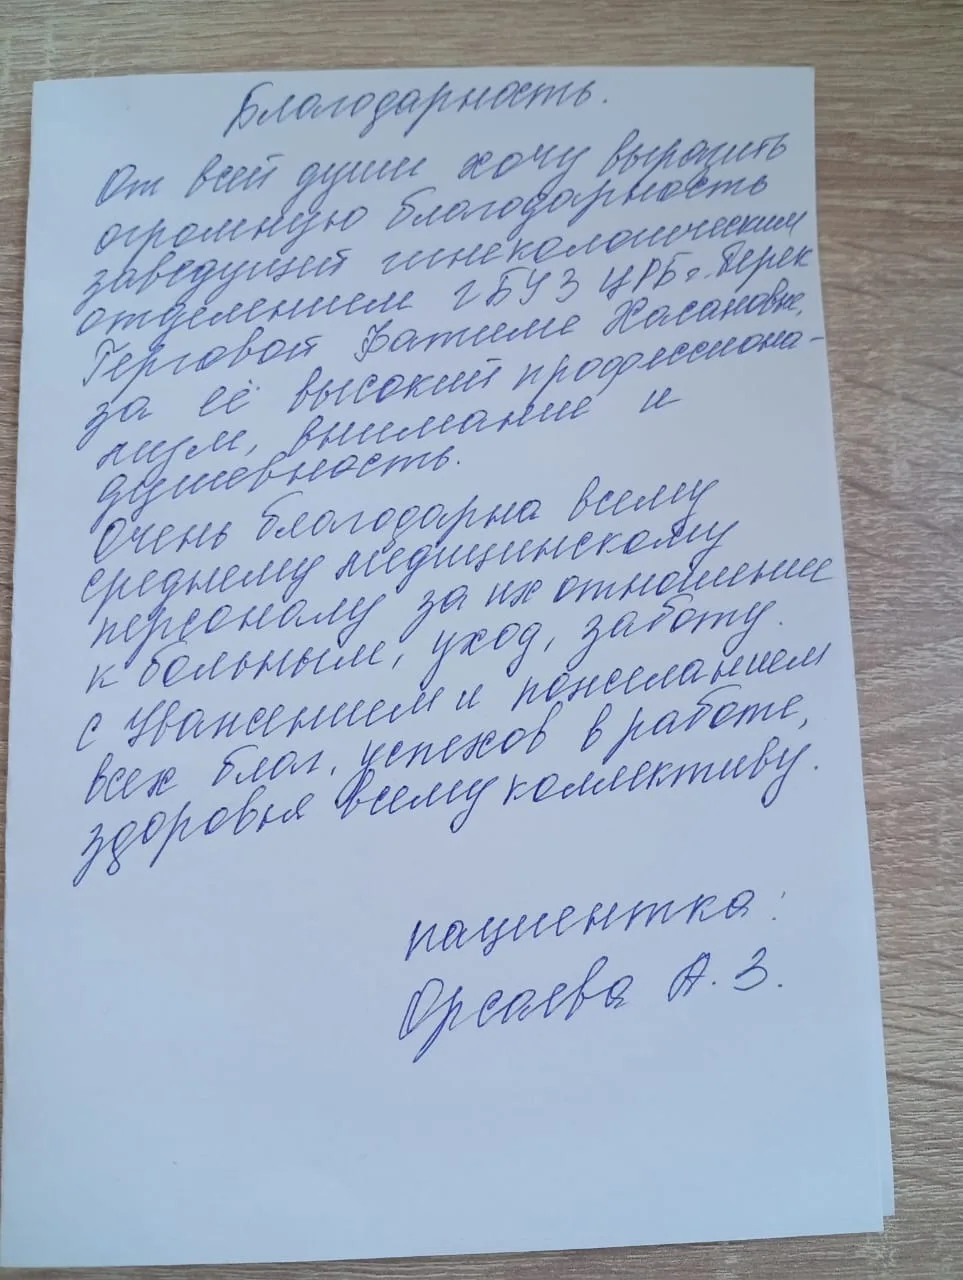 Благодарность.
От всей души хочу выразить
огромную благодарность
заведущей гинекологическим
отделением ГБУЗ ЦРБ г. Терек
Герговой Фатиме Хасановне,
за её высокий профессиона-
лизм, внимание и
душевность.
Очень благодарна всему
среднему медицинскому
персоналу за их отношение
к больным, уход, заботу.
с уважением и пожеланием
всех благ, успехов в работе,
здоровья всему коллективу.
пациентка:
Орсаева А. З.